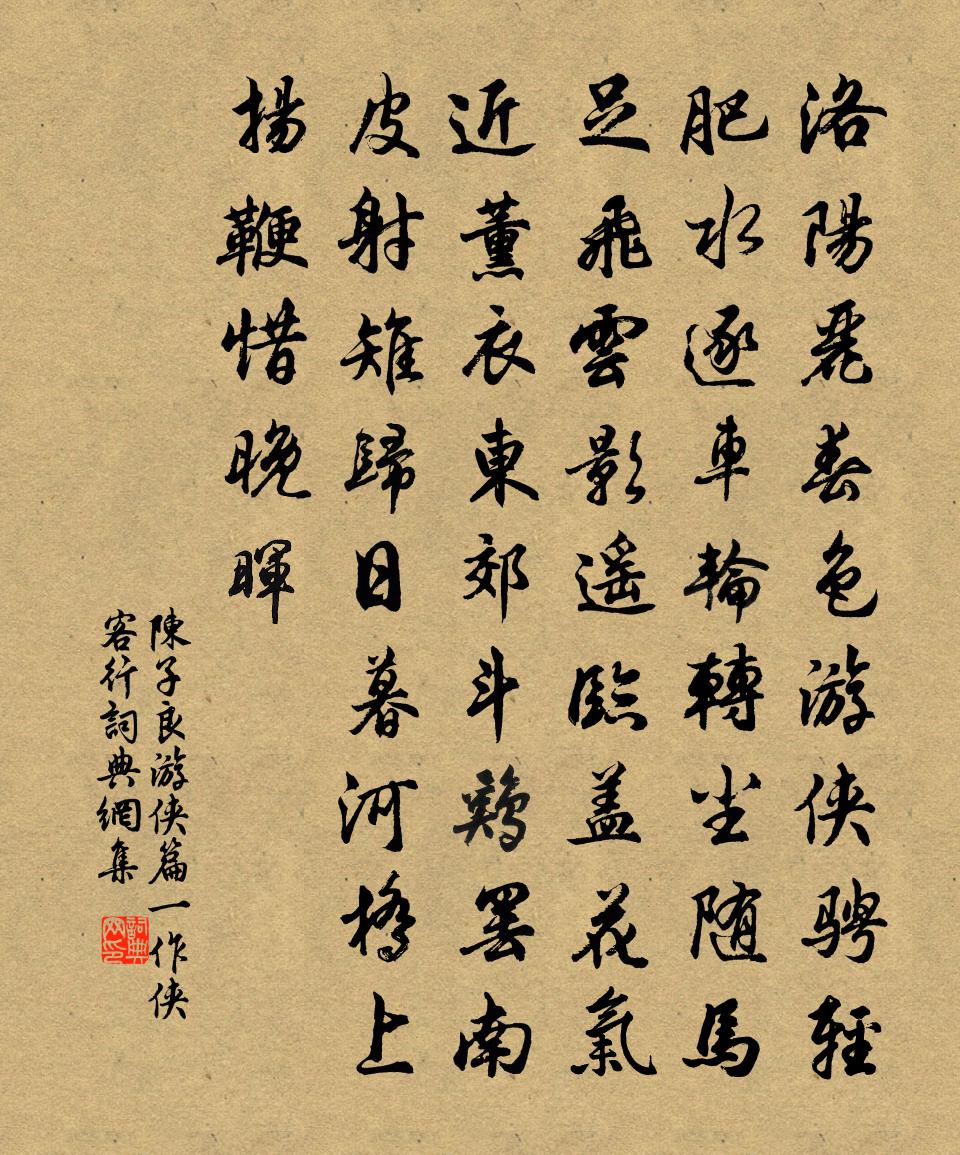 洛陽麗春色游俠騁輕
肥水逐車輪轉塵随馬
足飛雲影遥臨盖花氣
近薰衣東郊斗鶏罢南
皮射雉歸日暮河橋上
揚鞭惜晚暉
陳子良游俠篇一作俠
客行詞典網集
詞典
网印